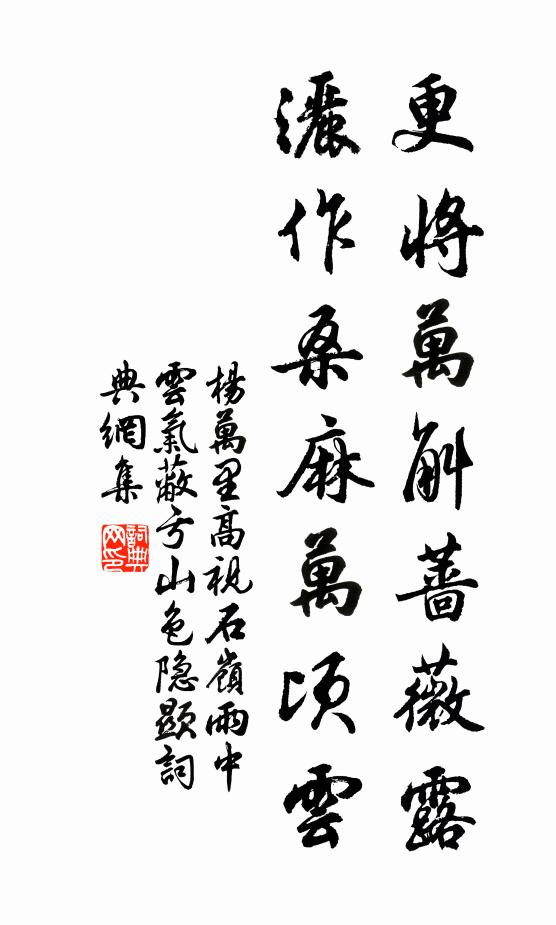 更將萬斛薔薇露
灑作桑麻萬頃雲
楊萬里高視石嶺雨中
雲氣蔽亏山色隐顯詞
典網集
詞典
网印